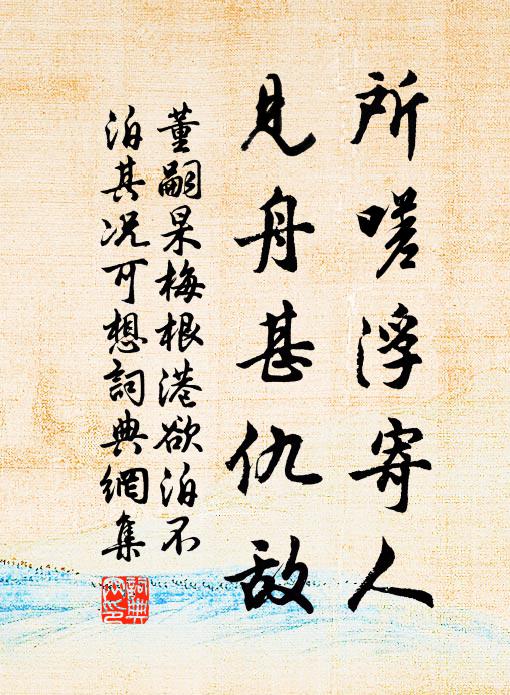 所嗟浮寄人
見舟甚仇敌
董嗣杲梅根港欲泊不
泊其况可想詞典網集